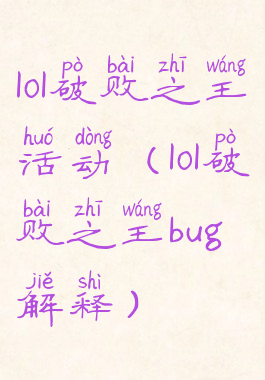 pò bài zhī wáng
lol破败之王
huó dòng pò
活动（lol破
bài zhī wáng
败之王bug
jiě shì
解释）